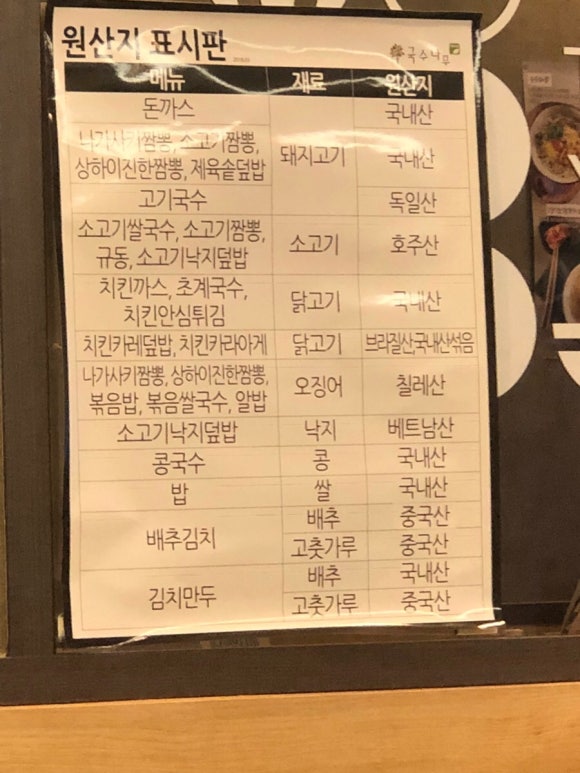 원산지 표시판
국수나무
메뉴 재료 원산지
돈까스 국내산
나가사키짬뽕, 소고기짬뽕,
상하이진한짬뽕, 제육솥덮밥
돼지고기 국내산
고기국수 독일산
소고기쌀국수, 소고기짬뽕,
규동, 소고기낙지덮밥
소고기 호주산
치킨까스, 초계국수,
치킨안심튀김
닭고기 국내산
치킨카레덮밥, 치킨카라아게 닭고기 브라질산,국내산섞음
나가사키짬뽕, 상하이진한짬뽕,
볶음밥, 볶음쌀국수, 알밥
오징어 칠레산
소고기낙지덮밥 낙지 베트남산
콩국수 콩 국내산
밥 쌀 국내산
배추김치
배추 중국산
고춧가루 중국산
김치만두
배추 국내산
고춧가루 중국산